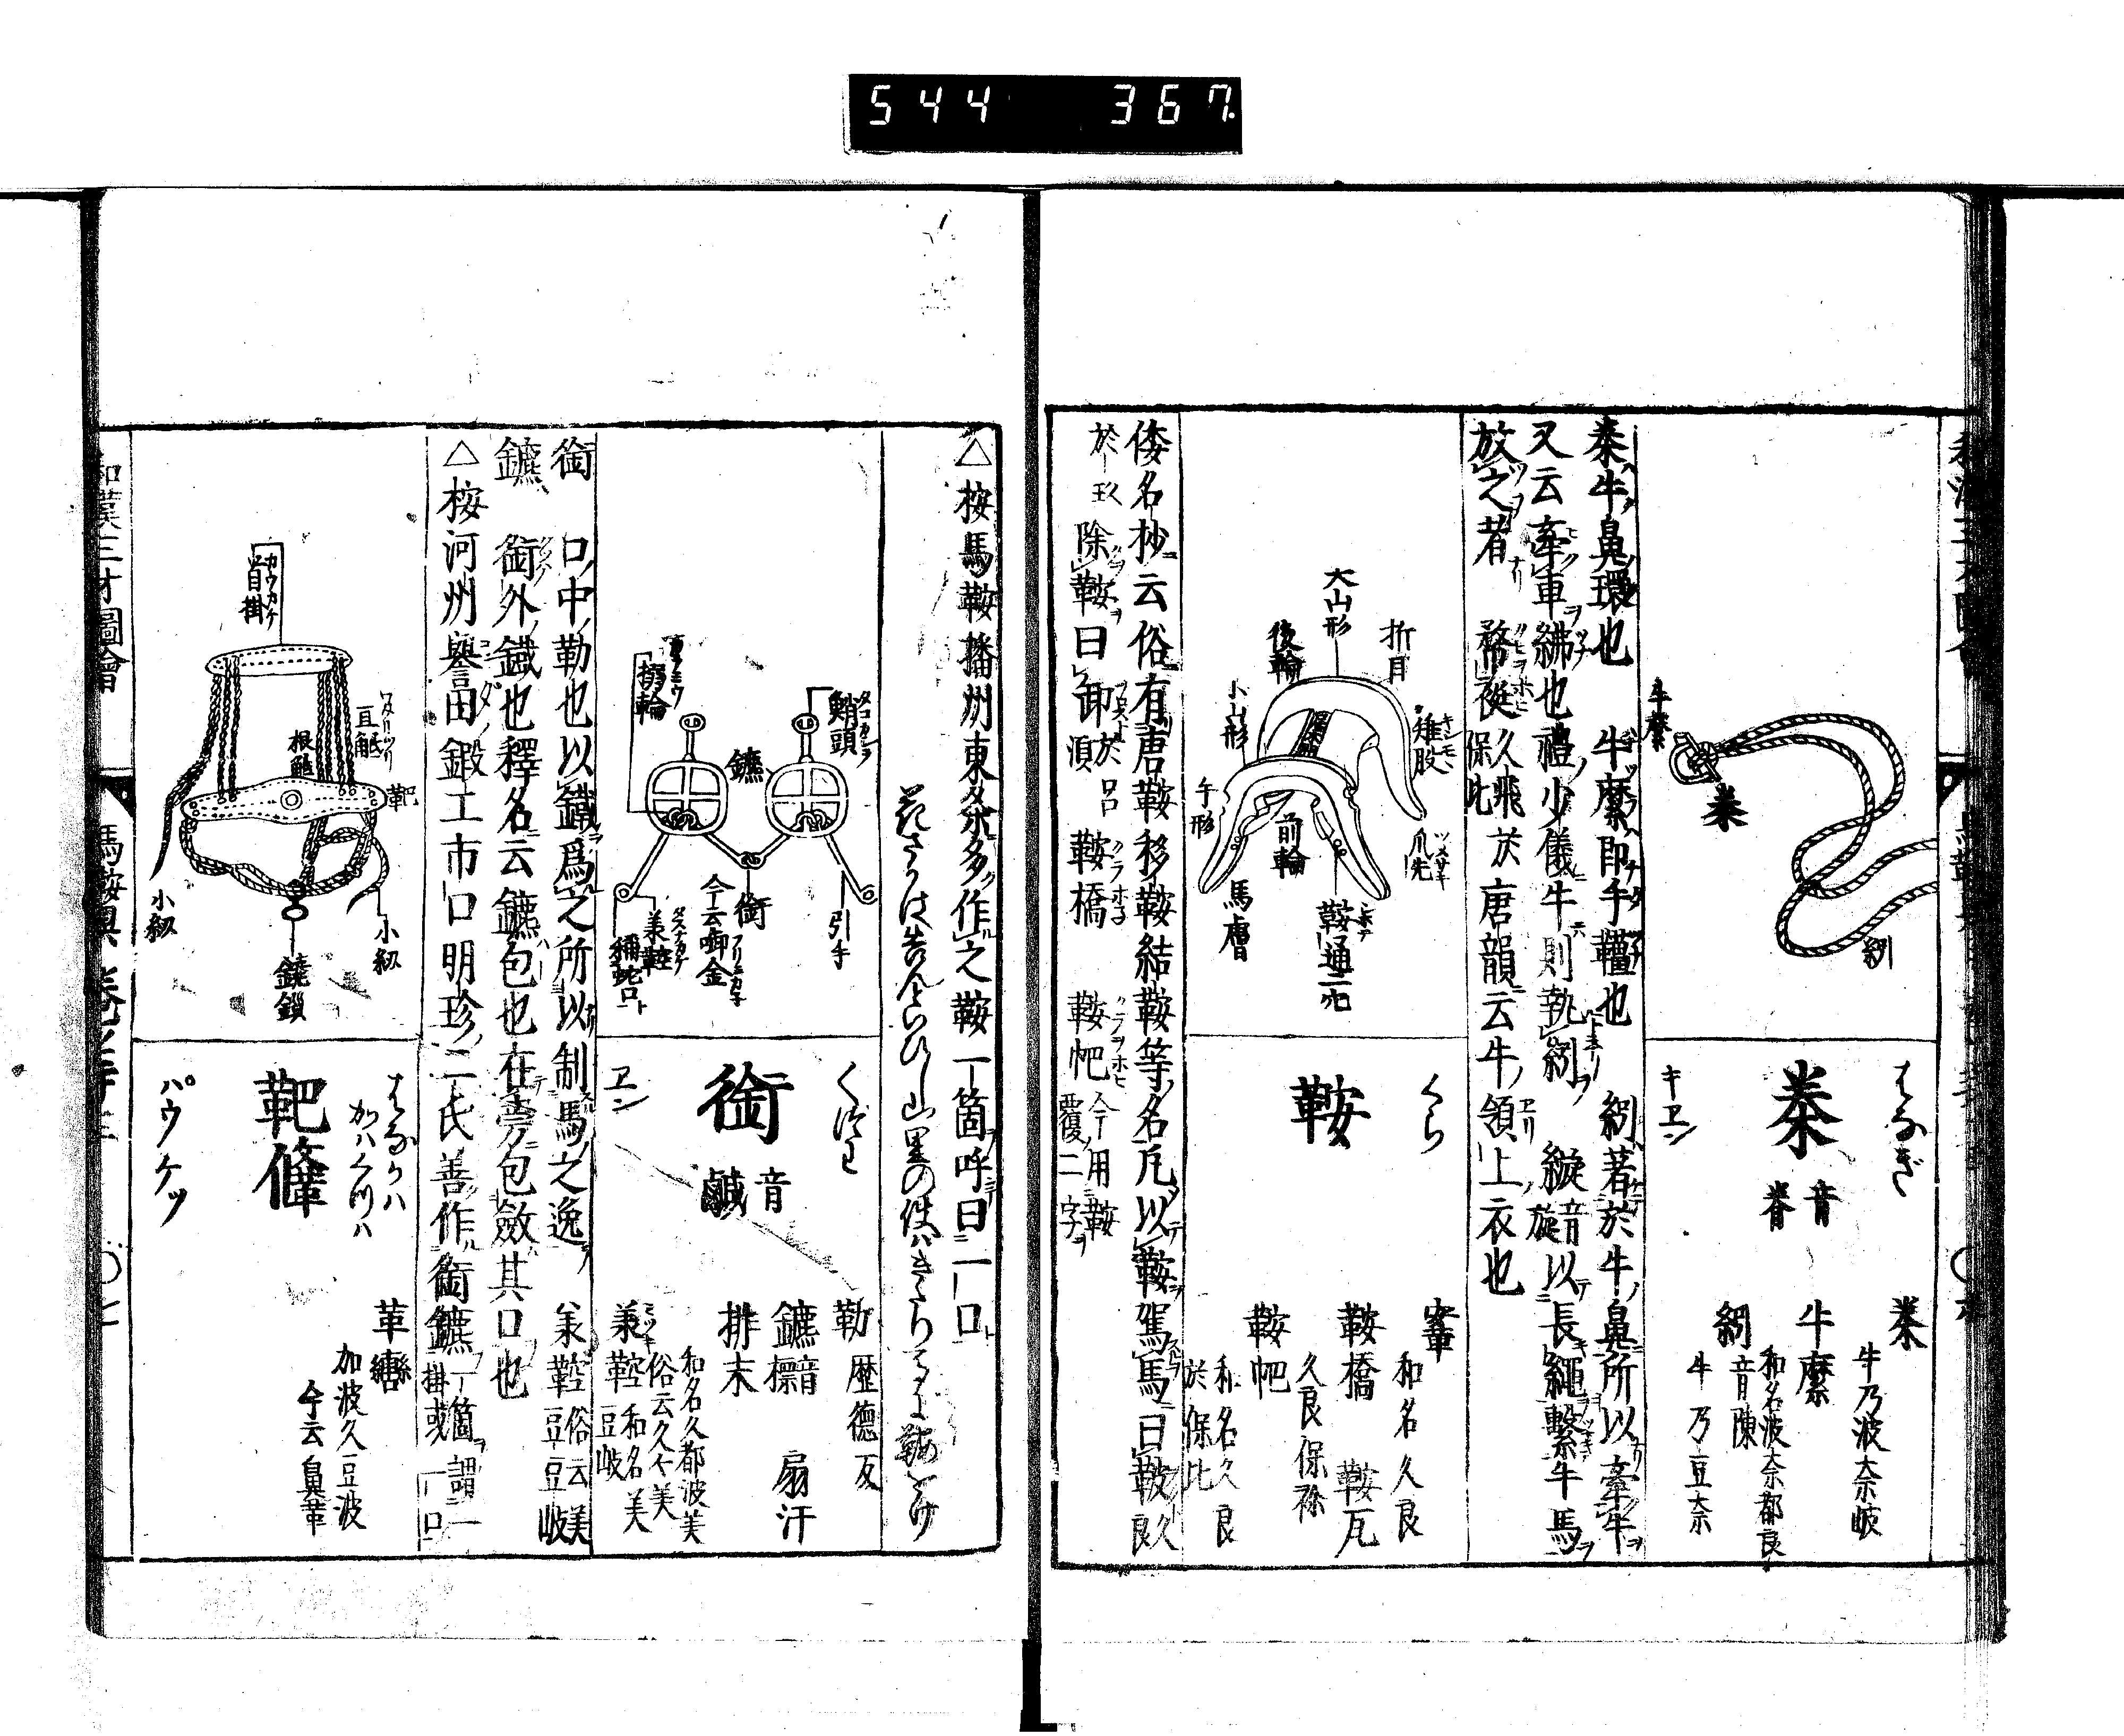 544 367
はなぎ
桊
音眷
キヱン
桊
牛乃波奈岐
牛縻
和名波奈都良
紖
音陳
牛乃豆奈
牛縻
桊
紖
桊牛鼻環也 牛縻即手韁也 紖著於牛鼻所以牽牛
又云牽車紼也禮少儀牛則執紖 縼音旋以長繩繫牛馬
放之者
久飛於保比
唐韻云牛領上衣也
くら
鞍
和名久良
鞍橋
久良保祢
鞍瓦
鞍帊
和名久良於保比
大山形
折目
後輪
雉股
小山形
爪先
手形
前輪
馬膚
鞍通二所
倭名抄云俗有唐鞍移鞍結鞍等名凡以鞍駕馬曰鞁久良
於玖 除鞍曰卸於呂須 鞍橋 鞍帊今用鞍覆二字
△按馬鞍播州東条多作之鞍一箇呼曰一口
花さかは告んといひし山里の使はきたりむまに鞍をけ
くつわ
銜
音鹹
ヱン
勒
歴德反
鑣
排末
扇汗
和名久都波美
俗云久々美
和名美豆岐
鮹頭
鑣
銜
今云啣金
引手
銜 口中勒也以鐵爲之所以制馬之逸 俗云美豆豆岐
鑣 銜外鐵也釋名云鑣包也在旁包斂其口也
△按河州譽田鍜工市口明珍二氏善作銜鑣一箇謂一掛或一口
はながは
かはくつは
靶鞗
パウ ケツ
革轡
加波久豆波
今云鼻革
首掛
根
靶
小紉
小紉
鐃鎖
和漢三才圖會